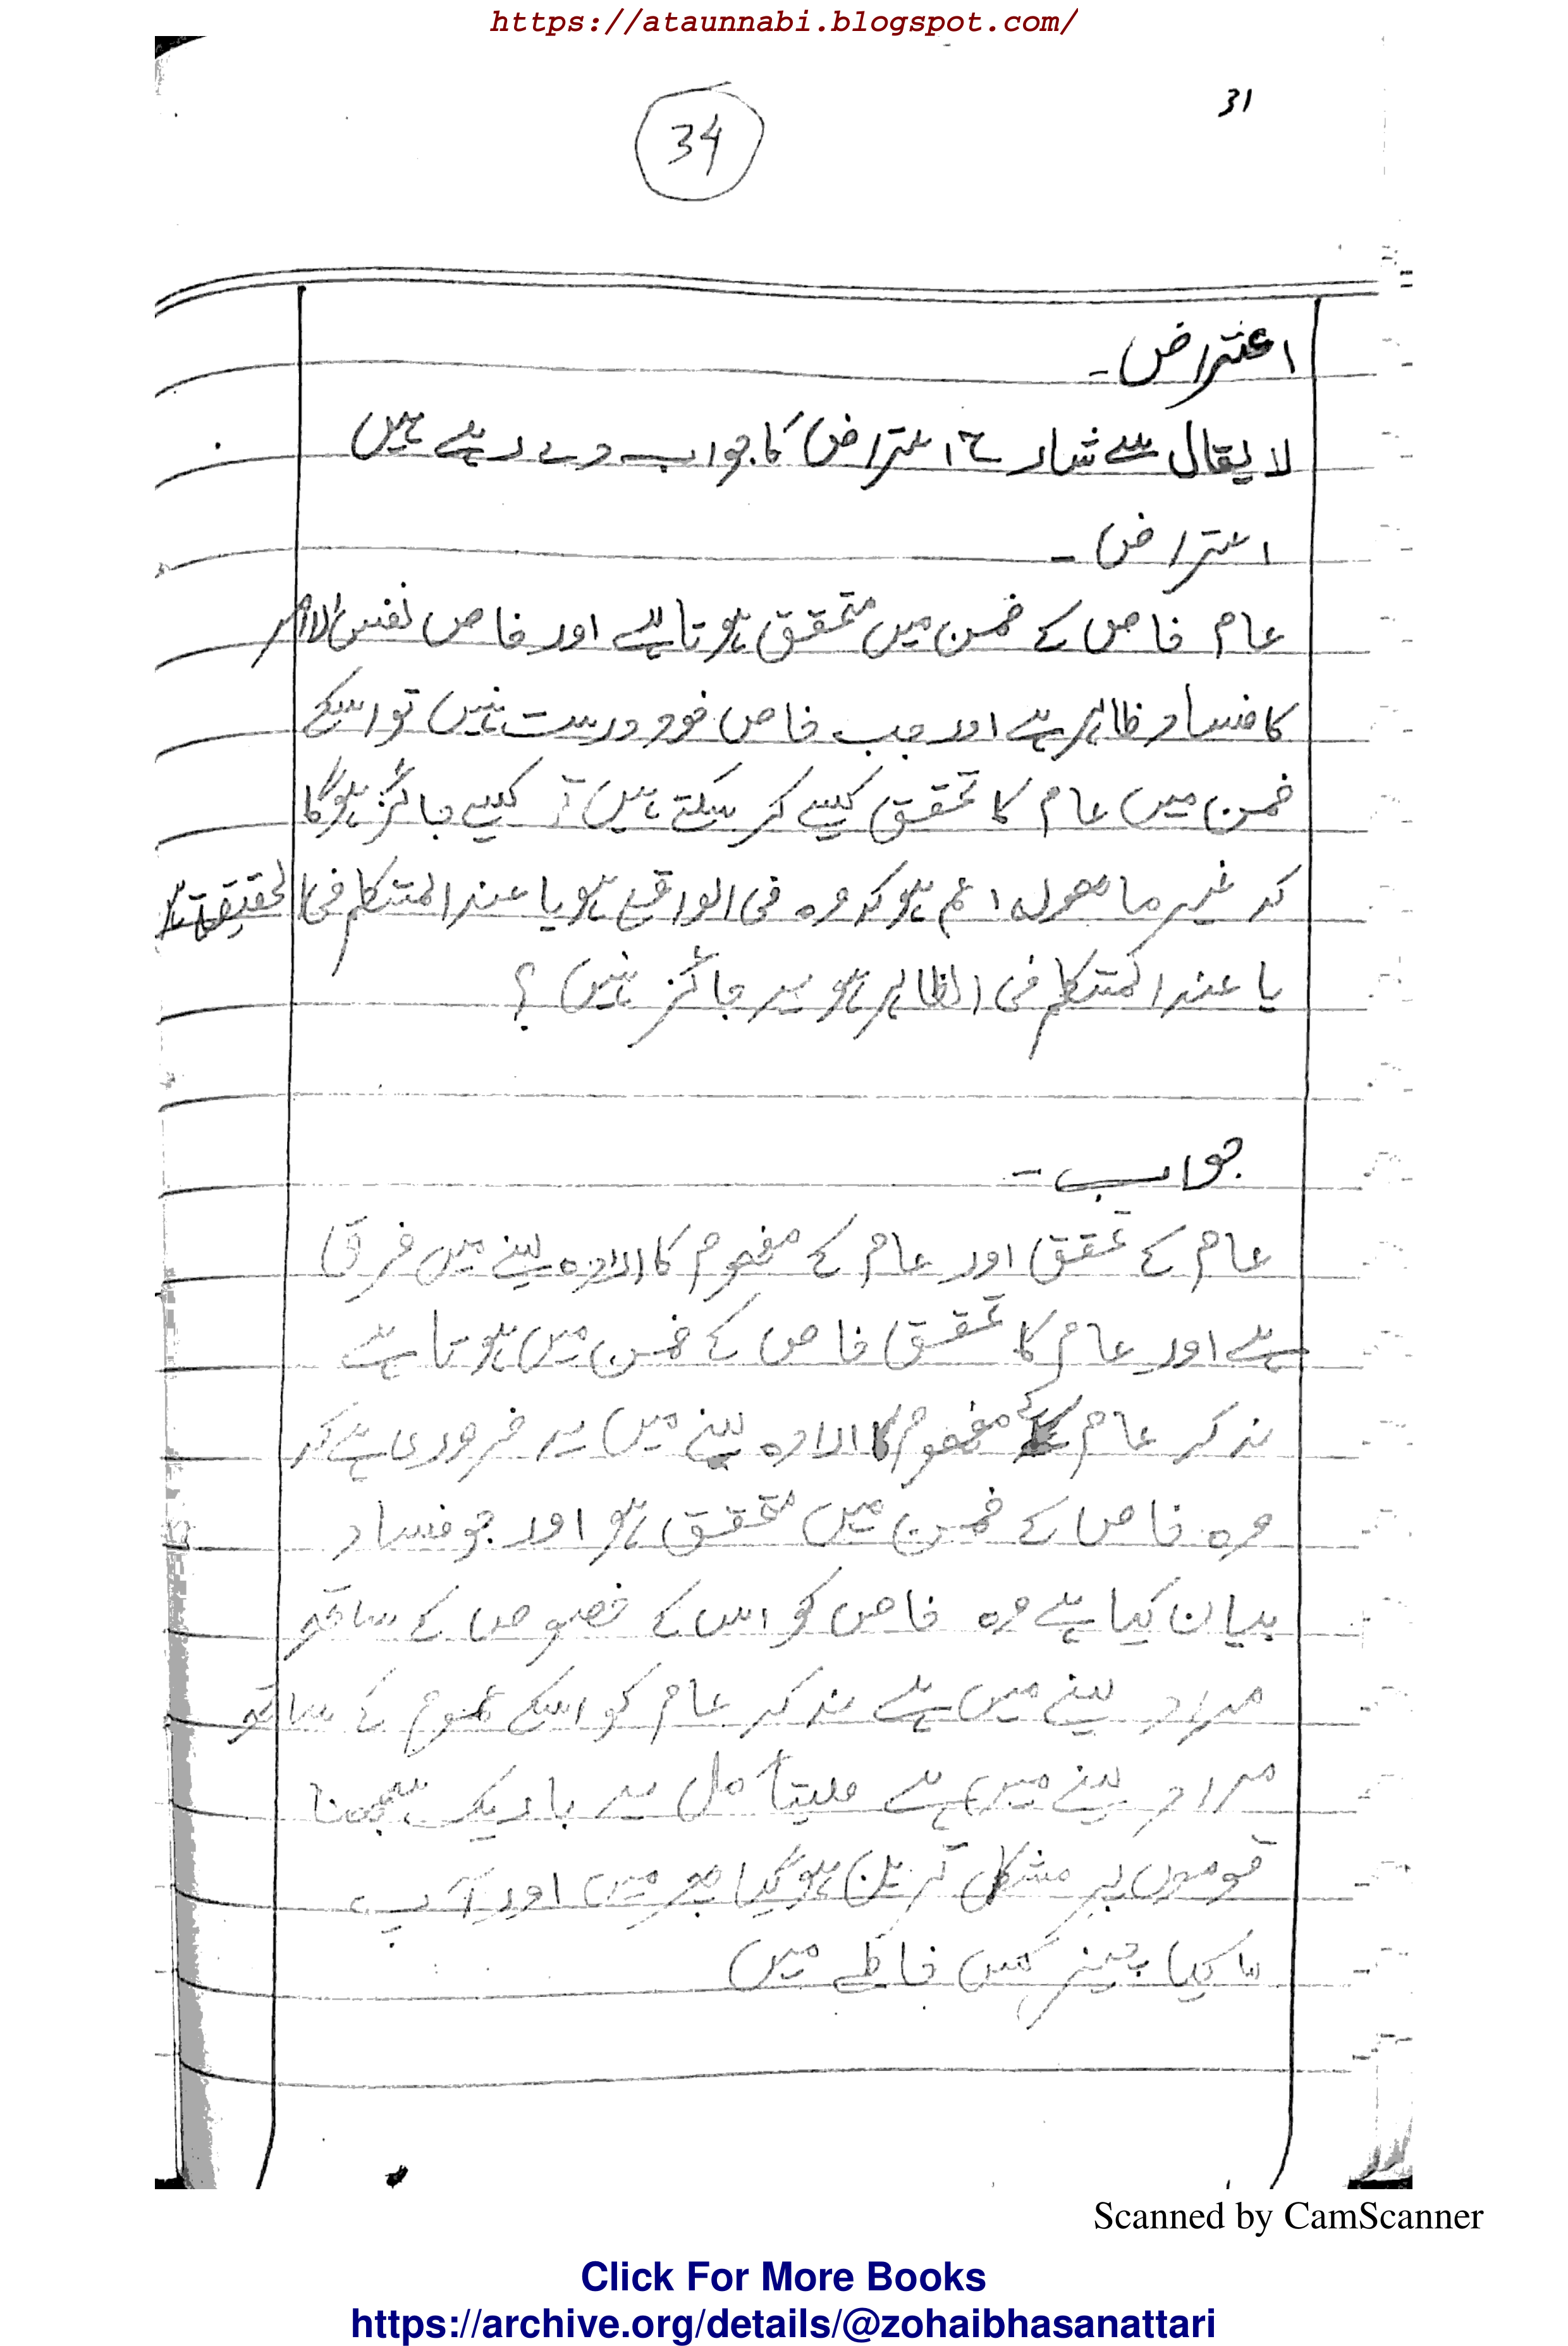 https://ataunnabi.blogspot.com/
31
34
اعتراض۔
لا یقال سے شارح اعتراض کا جواب دے رہے ہیں
اعتراض۔
عام خاص کے ضمن میں متحقق ہوتا ہے اور خاص نفس الامر
کا فساد ظاہر ہے اور جب خاص خود درست نہیں تو اسکے
ضمن میں عام کا تحقق کیسے کر سکتے ہیں کیسے جائز ہوگا
کہ غیر ما ھولہ اعم ہو کہ وہ فی الواقع ہو یا عند المتکلم فی الحقیقۃ
یا عند المتکلم فی الظاہر ہو یہ جائز نہیں ؟
جواب۔
عام کے تحقق اور عام کے مفہوم کا ارادہ لینے میں فرق
ہے اور عام کا تحقق خاص کے ضمن میں ہوتا ہے
نہ کہ عام کے مفہوم کا ارادہ لینے میں یہ ضروری ہے کہ
وہ خاص کے ضمن میں متحقق ہو اور جو فساد
بیان کیا ہے وہ خاص کو اس کے خصوص کے ساتھ
مراد لینے میں ہے نہ کہ عام کو اسکے عموم کے ساتھ
مراد لینے میں ہے فلیتأمل یہ باریک سمجھنا
قوموں پر مشکل ترین ہوگیا میں اور آپ
کیا چیز ہیں میں
Scanned by CamScanner
Click For More Books
https://archive.org/details/@zohaibhasanattari